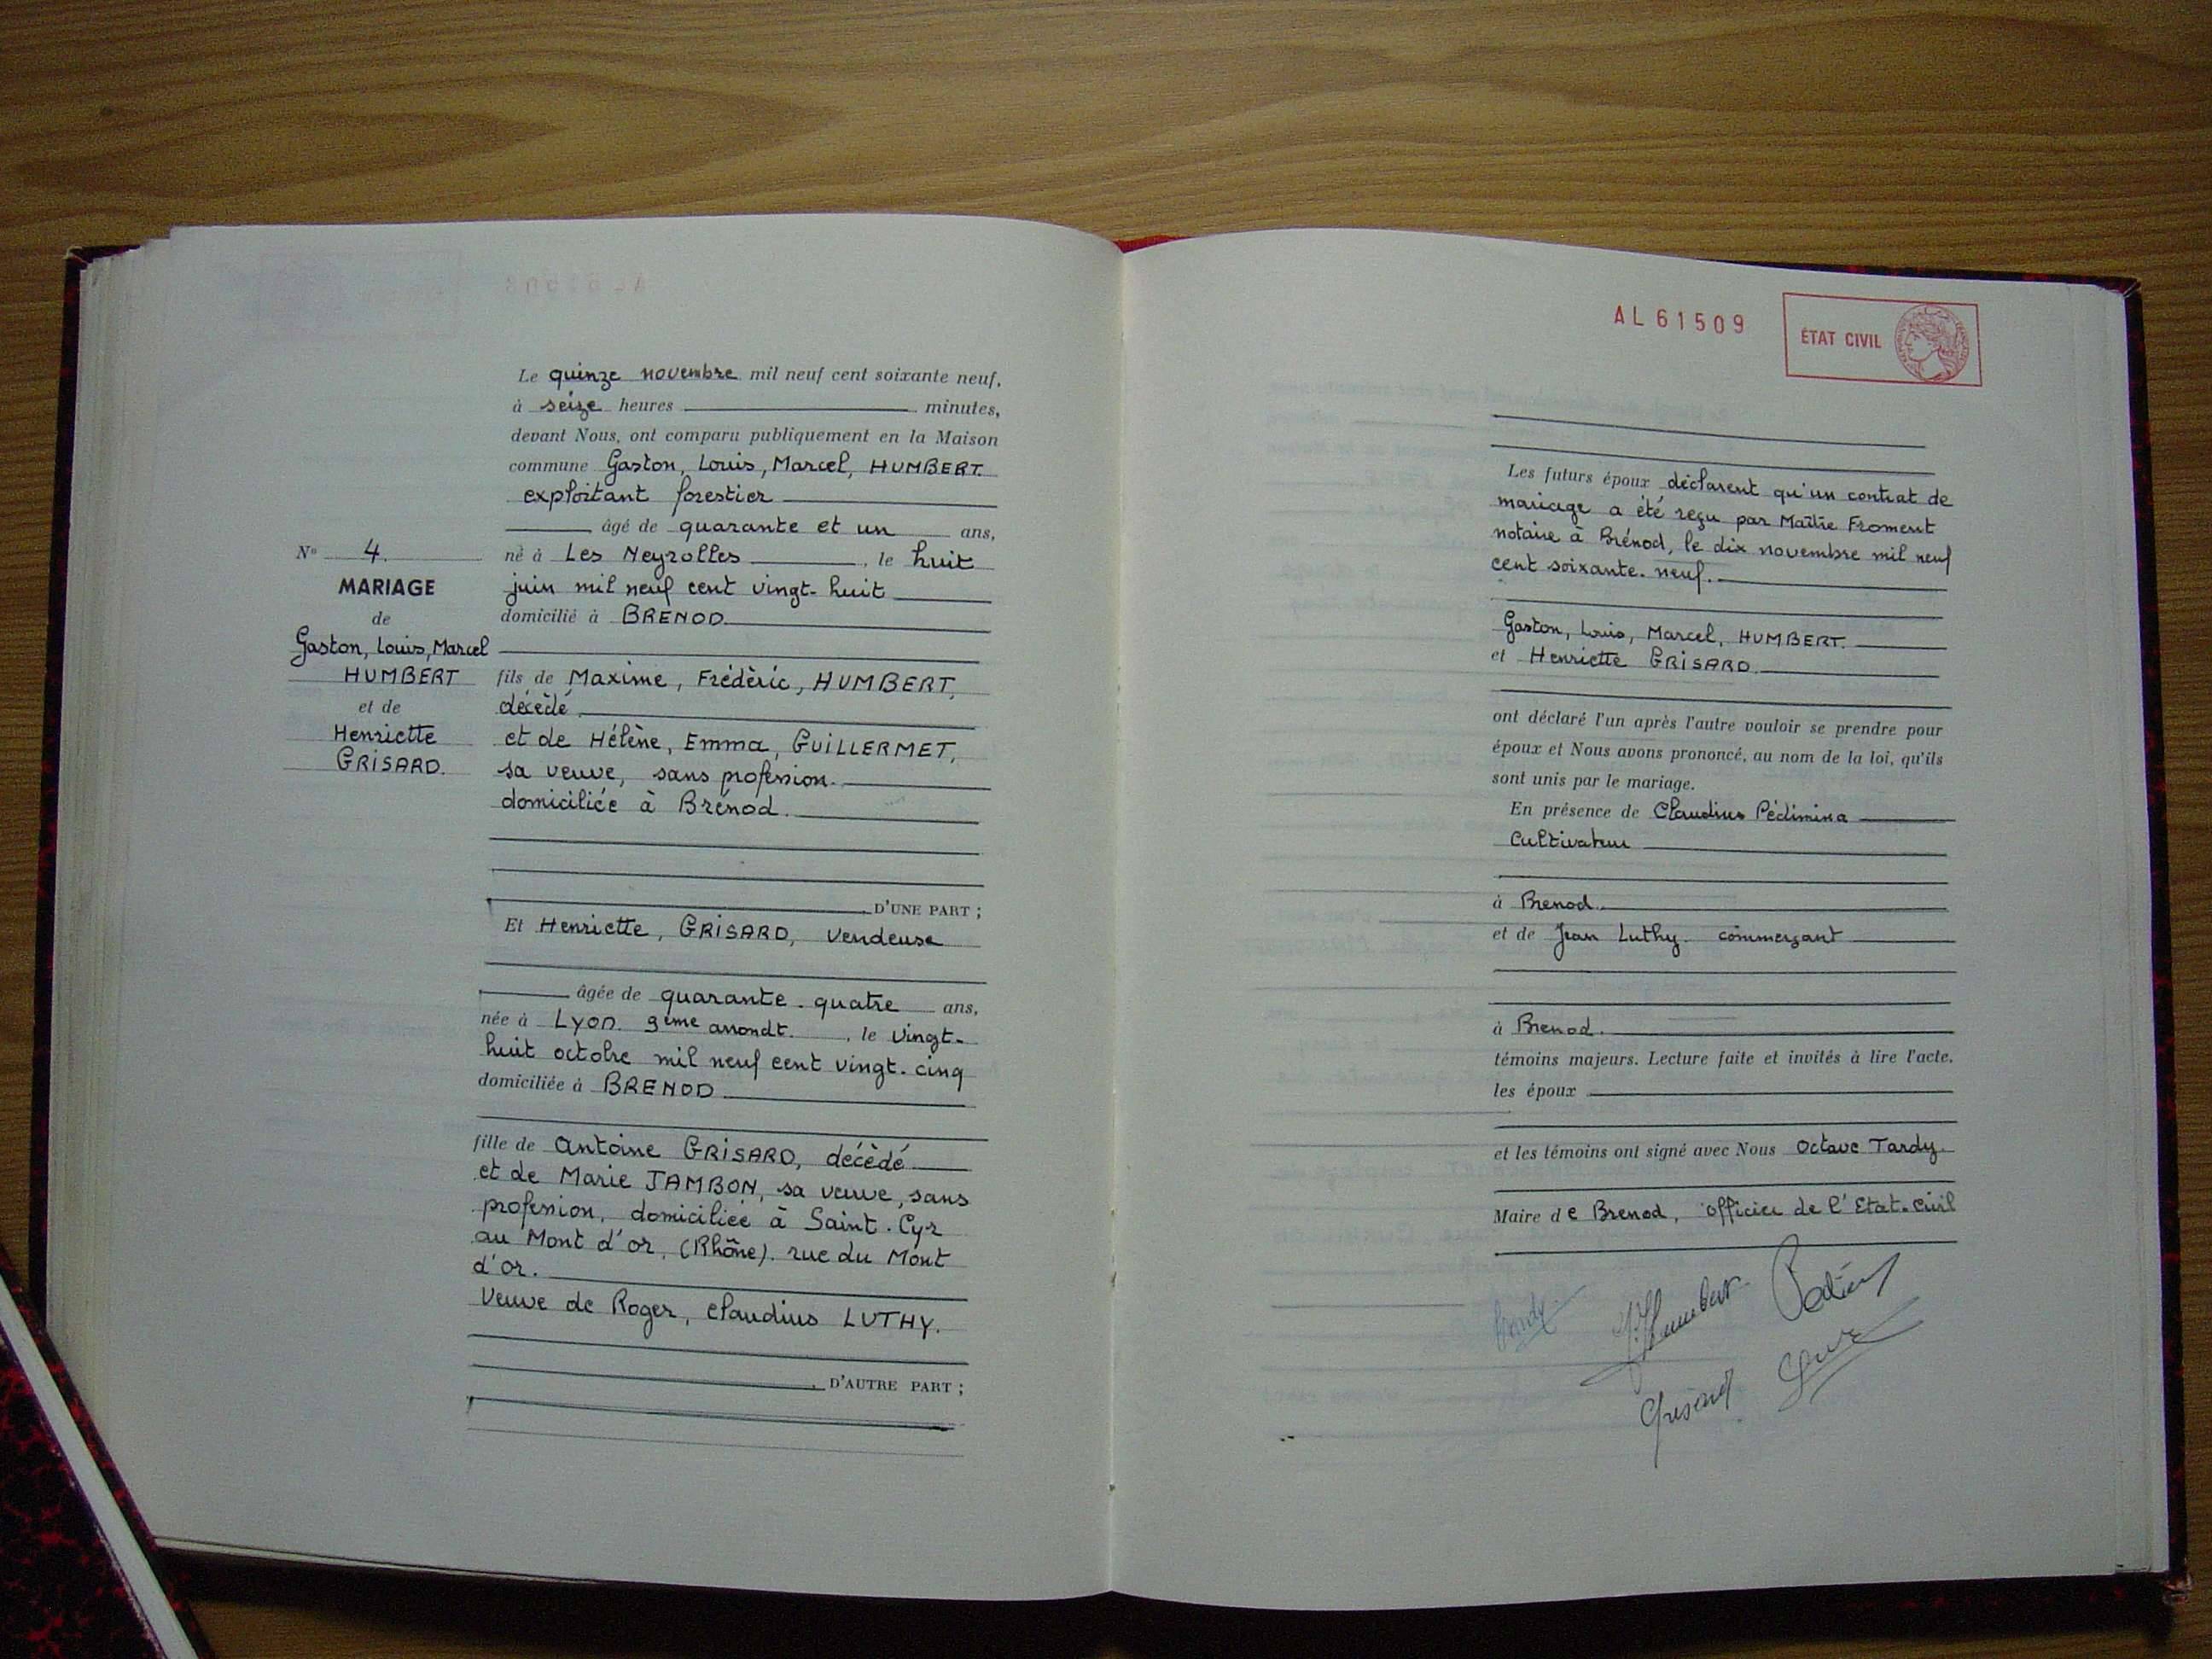 Le quinze novembre mil neuf cent soixante neuf,
à seize heures minutes,
devant Nous, ont comparu publiquement en la Maison
commune Gaston, Louis, Marcel, HUMBERT.
exploitant forestier
âgé de quarante et un ans,
né à Les Neyrolles, le huit
juin mil neuf cent vingt-huit
domicilié à BRENOD
N° 4.
MARIAGE
de
Gaston, Louis, Marcel
HUMBERT
et de
Henriette
GRISARD.
fils de Maxime, Frédéric, HUMBERT,
décédé
et de Hélène, Emma, GUILLERMET,
sa veuve, sans profession.
domiciliée à Brénod.
D'UNE PART ;
Et Henriette, GRISARD, vendeuse
âgée de quarante-quatre ans,
née à Lyon. 9ème arrondt., le vingt-
huit octobre mil neuf cent vingt-cinq
domiciliée à BRENOD
fille de Antoine GRISARD, décédé
et de Marie JAMBON, sa veuve, sans
profession, domiciliée à Saint-Cyr
au Mont d'or, (Rhône). rue du Mont
d'or.
Veuve de Roger, Claudius LUTHY.
D'AUTRE PART ;
AL 61509
ÉTAT CIVIL
Les futurs époux déclarent qu'un contrat de
mariage a été reçu par Maître Froment
notaire à Brénod, le dix novembre mil neuf
cent soixante-neuf.
Gaston, Louis, Marcel, HUMBERT.
et Henriette GRISARD.
ont déclaré l'un après l'autre vouloir se prendre pour
époux et Nous avons prononcé, au nom de la loi, qu'ils
sont unis par le mariage.
En présence de Claudius Pédimina
Cultivateur
à Brenod.
et de Jean Luthy. commerçant
à Brenod.
témoins majeurs. Lecture faite et invités à lire l'acte,
les époux
et les témoins ont signé avec Nous Octave Tardy.
Maire de Brenod, officier de l'Etat-civil
Humbert
Grisard